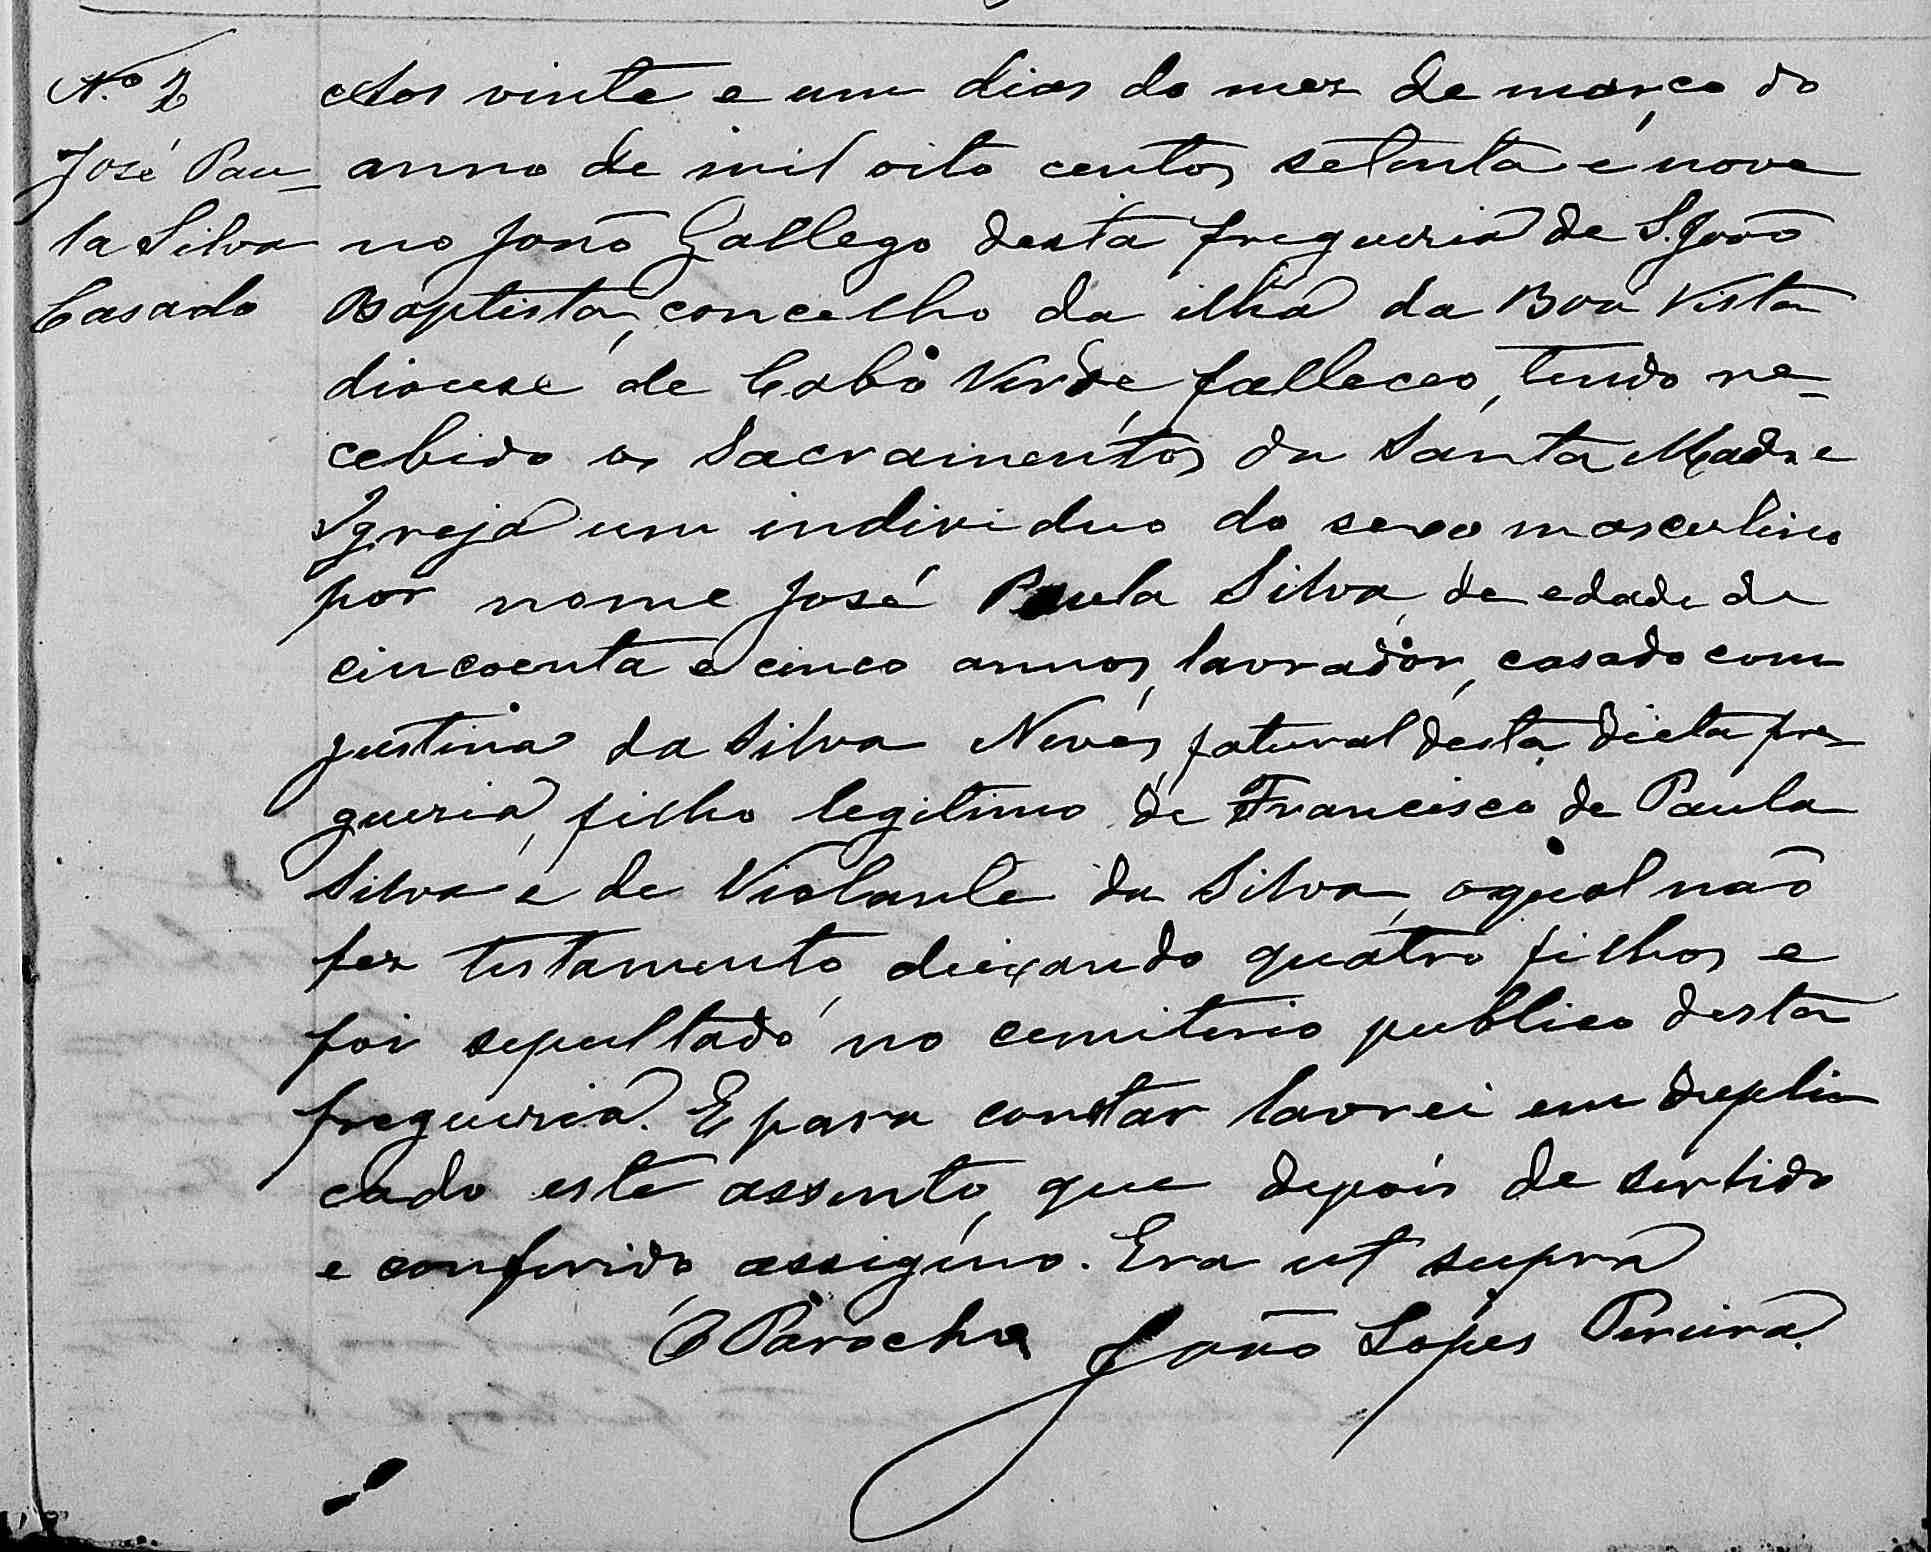 N.º 2
José Pau-
la Silva
Casado
Aos vinte e um dias do mez de março do
anno de mil oito centos setenta e nove
no João Gallego desta freguezia de S. João
Baptista, concelho da ilha da Boa Vista
diocese de Cabo Verde, falleceo, tendo re-
cebido os Sacramentos da Santa Madre
Igreja um individuo do sexo masculino
por nome José Paula Silva, de edade de
cincoenta e cinco annos, lavrador, casado com
Justina da Silva Neves, natural desta dicta fre-
guezia, filho legitimo de Francisco de Paula
Silva e de Violante da Silva, o qual não
fez testamento, deixando quatro filhos e
foi sepultado no cemiterio publico desta
freguezia. E para constar lavrei em dupli-
cado este assento, que depois de
e conferido, assigno. Era ut supra
O Parocho João Lopes Pereira.